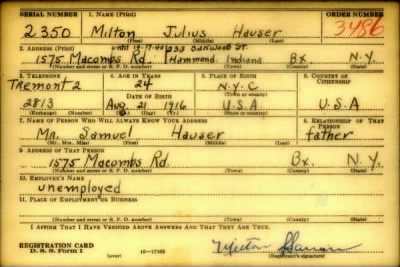 SERIAL NUMBER 1. NAME (Print) ORDER NUMBER
2350 Milton Julius Hauser 3486
(First) (Middle) (Last)
2. ADDRESS (Print) until 12-17-40 1233 Oakwood St.
1575 Macombs Rd. Hammond Indiana Bx. N.Y.
(Number and street or R. F. D. number) (Town) (County) (State)
3. TELEPHONE 4. AGE IN YEARS 5. PLACE OF BIRTH 6. COUNTRY OF CITIZENSHIP
Tremont 2 24 N.Y.C
DATE OF BIRTH (Town or county)
2813 Aug 21 1916 U.S.A. U.S.A
(Exchange) (Number) (Mo.) (Day) (Yr.) (State or country)
7. NAME OF PERSON WHO WILL ALWAYS KNOW YOUR ADDRESS 8. RELATIONSHIP OF THAT PERSON
Mr. Samuel Hauser father
(Mr., Mrs., Miss) (First) (Middle) (Last)
9. ADDRESS OF THAT PERSON
1575 Macombs Rd. Bx. N.Y.
(Number and street or R. F. D. number) (Town) (County) (State)
10. EMPLOYER'S NAME
unemployed
11. PLACE OF EMPLOYMENT OR BUSINESS
(Number and street or R. F. D. number) (Town) (County) (State)
I AFFIRM THAT I HAVE VERIFIED ABOVE ANSWERS AND THAT THEY ARE TRUE.
REGISTRATION CARD
D. S. S. Form 1 16-17105 (Registrant's signature)